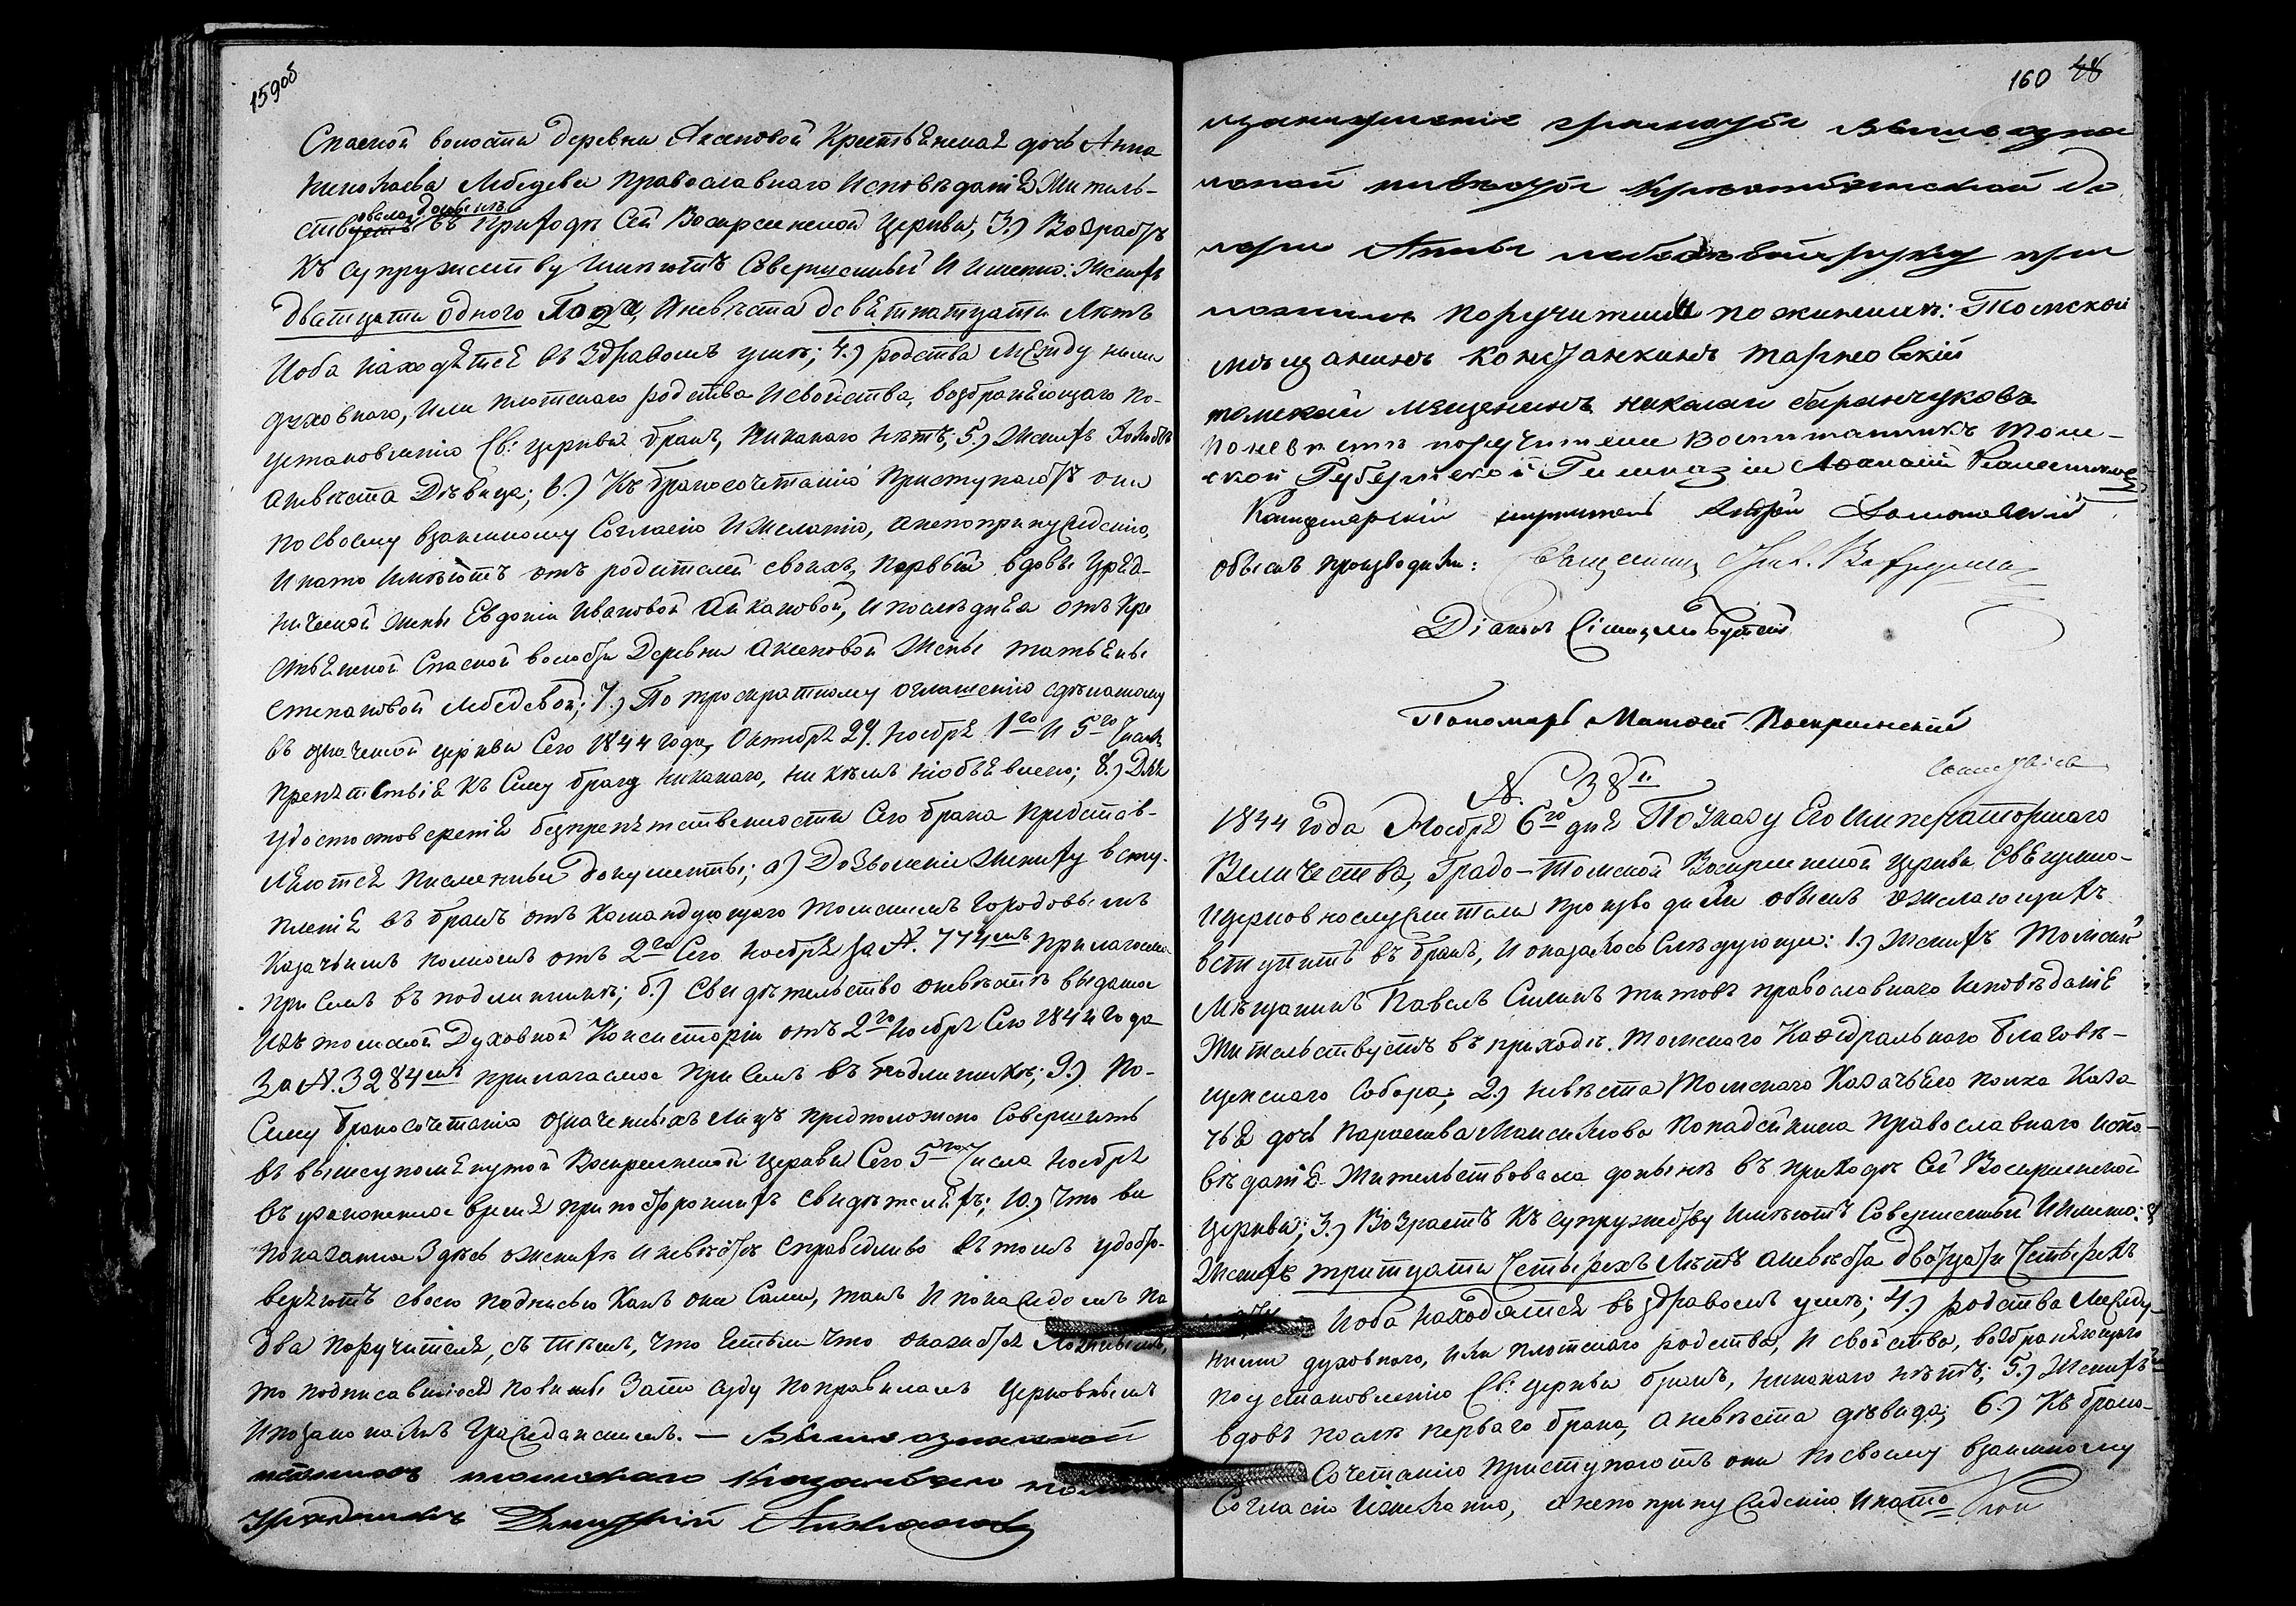 159об
Спаской волости деревни Аксеновой Крестьянская дочь Анна
Николаева Лебедева Православнаго Исповѣданія Житель-
овала донынѣ
ствуетъ въ Приходѣ Сей Воскресенской Церкви; 3.) Возрастъ
къ супружеству имѣютъ совершенный и именно: Женихъ
дватцати одного Года, Иневѣста девятнатцати лѣтъ
Иоба находятся въ здравомъ умѣ; 4.) родства между ними
духовнаго, или плотскаго родства и свойства, возбраняющаго по-
установленію Св: церкви бракъ, никакаго нѣтъ; 5.) Женихъ Холостъ
аневѣста Дѣвица; 6.) Къ бракосочетанію Приступаютъ они
по своему взаимному Согласію и желанію, а непопринужденію,
и нато имѣютъ отъ родителей своихъ, первый вдовы Уряд-
ничьей жены Евдокіи Ивановой Айкановой, и послѣдняя отъ Кре
стьянской Спаской волости Деревни Аксеновой Жены Татьяны
Степановой Лебедевой; 7.) По троекратному оглашенію сдѣланому
въ означеной церкви Сего 1844 года, Октября 29. Ноября 1го и 5го Числъ
Препятствія къ Сему браку никакаго, ни кѣмъ необъявлено; 8.) Для
Удостовѣренія безпрепятственности Сего брака Представ-
ляются писменные документы; а) Дозволеніе Жениху всту-
пленія въ бракъ отъ командующаго Томскимъ Городовымъ
Казачьимъ полкомъ отъ 2го Сего ноября за №. 774мъ прилагаемое
при семъ въ подлинникѣ; б.) Свидѣтельство оневѣстѣ выданое
изъ томской Духовной Консисторіи отъ 2го ноября Сего 1844 года
За №. 3284мъ прилагаемое при Семъ въ подлинникѣ; 9.) По-
Сему бракосочетанію означеныхъ Лицъ предположено Совершить
въ вышеупомянутой Воскресенской церкви Сего 5го Числа Ноября
въ узаконенное время при постороннихъ свидѣтеляхъ; 10.) Что въ
показанное Здѣсь ожених и невѣстѣ справедливо въ томъ удосто-
вѣряютъ своею подписью какъ они Сами, такъ и покаждомъ по
два поручителя, съ тѣмъ, что естьли что окажется ложнымъ,
то подписавшіеся повинны Зато Суду поправиламъ Церковнымъ
И позаконамъ Гражданскимъ. — Вышеозначенной
женихъ томскаго Казачьяго полка
Урядникъ Дмитрій Айкановъ
160 48
означенной
невѣсты Крестьянской до
чери Анны Лебедевой руку при
ложилъ Поручители по женихѣ: Томской
мѣщанинъ Константинъ Тарновскій
томскай мещенинъ николаи баранчуковъ
Поневѣстѣ поручители Воспитанникъ Том-
ской Губернской Гимназіи
Канцелярскій служитель Андрей
обыскъ производили: Священникъ
Діаконъ
Пономарь Матвѣй Воскресенскій
№. 38й
1844 года Ноября 6го дня По Указу Его Императорскаго
Величества, Градо-Томской Воскресенской церкви Священно-
Ицерковнослужители производили обыскъ ожелающихъ
вступить въ бракъ, И оказалось Слѣдующее: 1.) Женихъ Томской
Мѣщанинъ Павелъ Силинъ Титовъ православнаго Исповѣданія
Жительствуетъ въ приходѣ. Томскаго Каѳедральнаго Благовѣ-
щенскаго Собора; 2.) невѣста Томскаго Казачьяго полка Каза
чья дочь Параскева Максимова Попадейкина Православнаго Испо-
вѣданія Жительствовала донынѣ въ приходѣ Сей Воскресенской
Церкви; 3.) Возрастъ къ супружеству имѣютъ Совершенный Иименно:
Женихъ тритцати Четырехъ Лѣтъ аневѣста двадцати Четырехъ
Иоба находятся въ здравомъ умѣ; 4.) родства Между
ними духовнаго, или плотскаго родства, И свойства, возбраняющаго
поустановленію Св: церкви бракъ, никакаго нѣтъ; 5.) Женихъ
вдовъ послѣ перваго брака, а невѣста дѣвица; 6.) Къ брако-
Сочетанію приступаютъ они посвоему взаимному
Согласію Ижеланію, анепопринужденію Инато